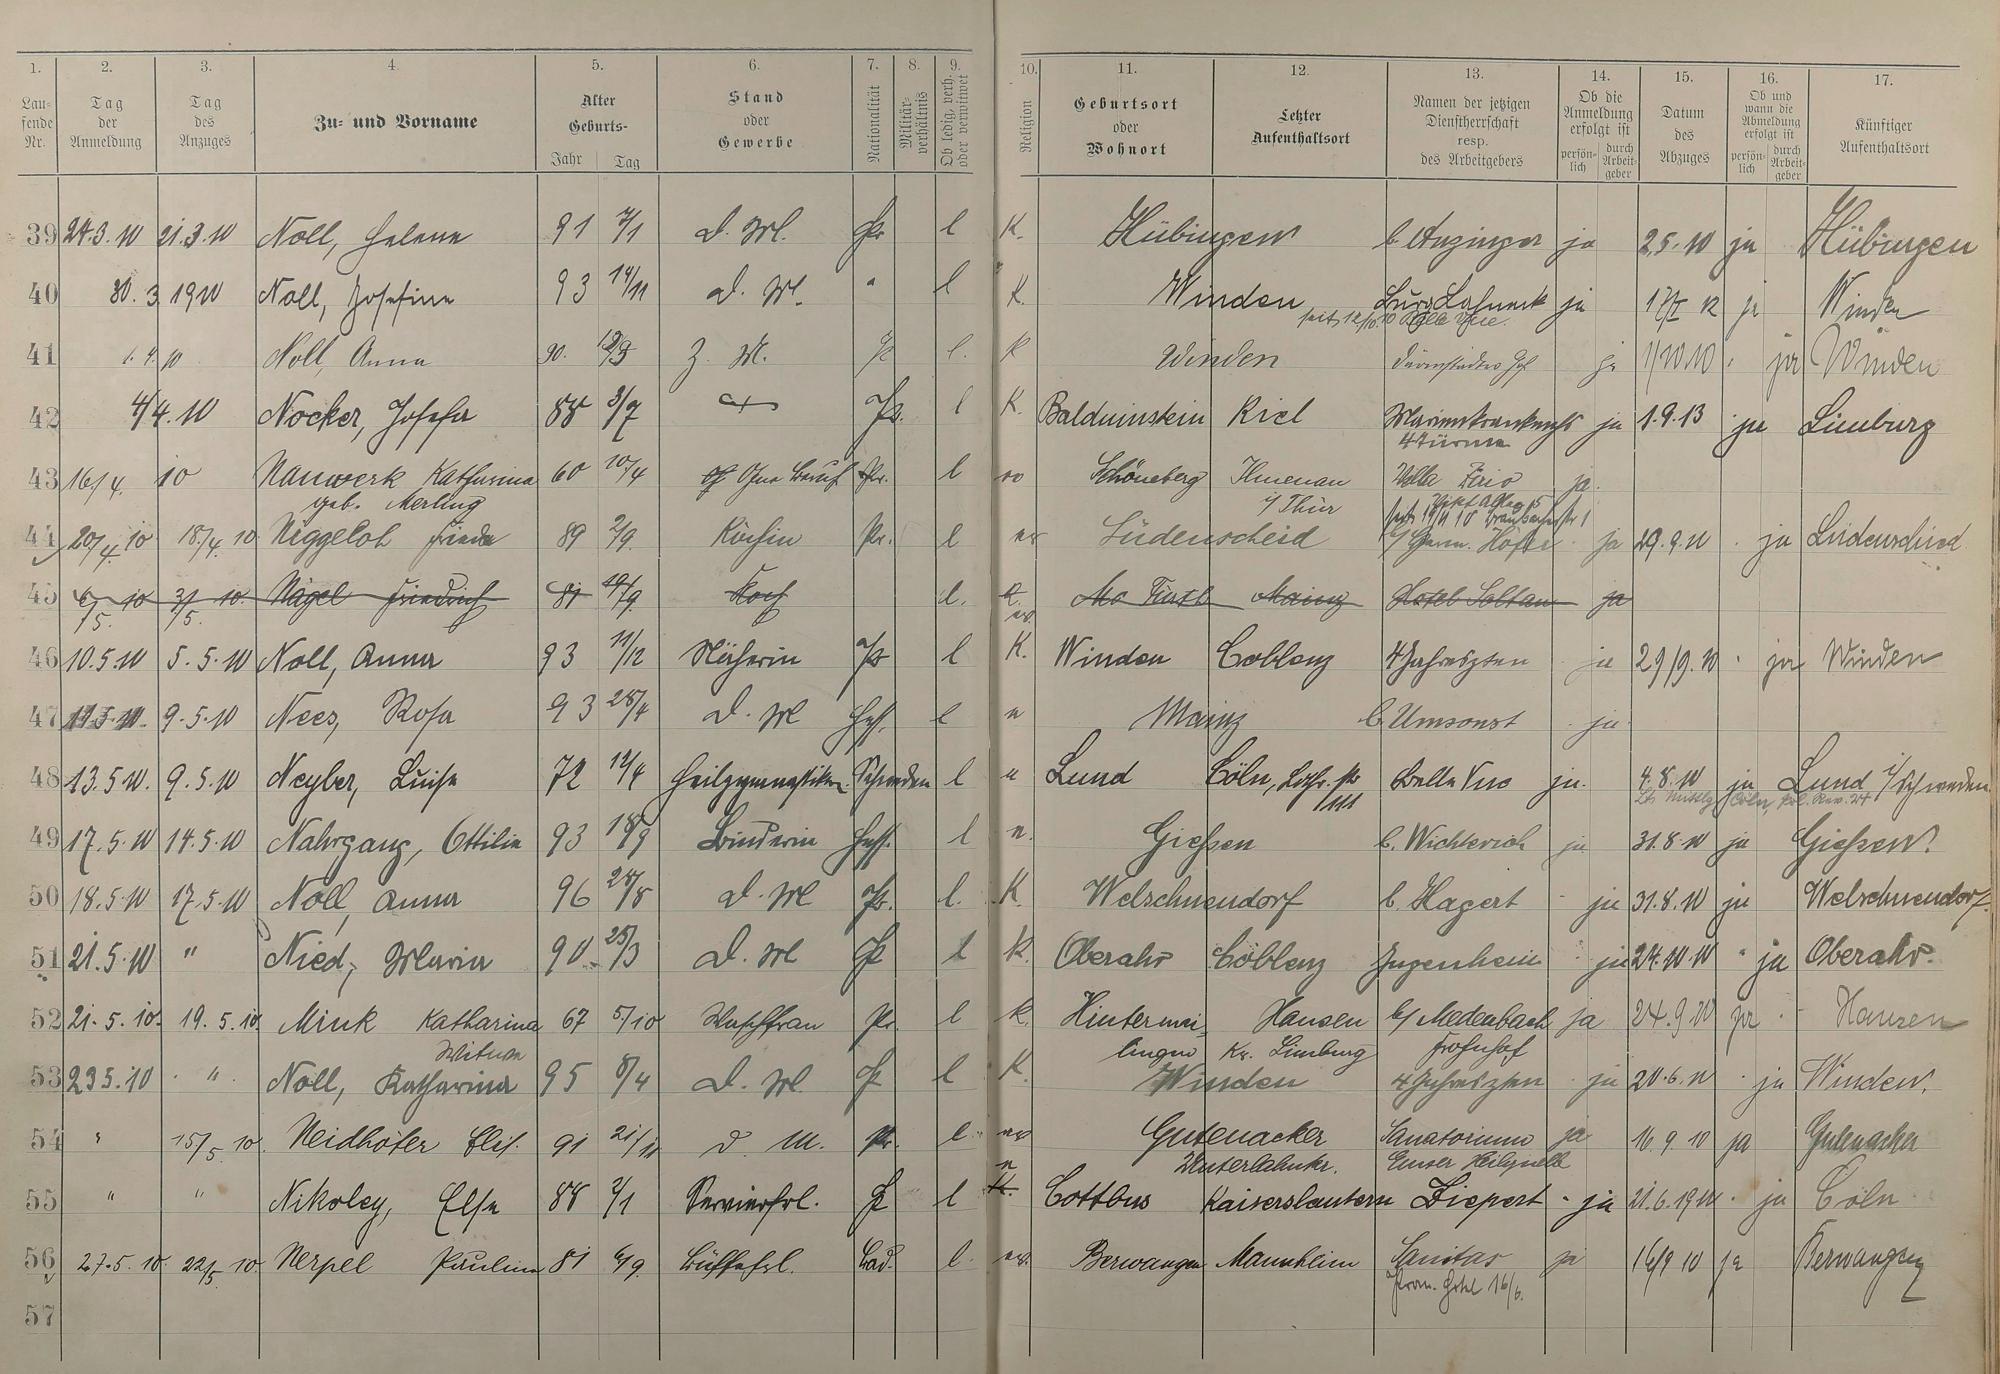 1. 2. 3. 4. 5. 6. 7. 8. 9. 10. 11. 12. 13. 14. 15. 16. 17.
Lau-fende Nr. Tag der Anmeldung Tag des Anzuges Zu- und Vorname Alter Geburts- Jahr Tag Stand oder Gewerbe Nationalität Militär-verhältnis Ob ledig, verh. oder verwitwet Religion Geburtsort oder Wohnort Letzter Aufenthaltsort Namen der jetzigen Dienstherrschaft resp. des Arbeitgebers Ob die Anmeldung erfolgt ist persön-lich durch Arbeit-geber Datum des Abzuges Ob und wann die Abmeldung erfolgt ist persön-lich durch Arbeit-geber Künftiger Aufenthaltsort
39 24.3.10 21.3.10 Noll, Helene 91 7/1 d. M. Pr l K. Hübingen b. Anzinger ja 2.5.10 ja Hübingen
40 30.3.1910 Noll, Josefine 93 14/11 d. M. " l K. Winden Burg Lahneck ja ja Winden
seit 12/10.10 Belle Vue.
41 1.4.10 Noll, Anna 90. Z. M. Pr l. K Winden Darmstädter Hof ja 1/10.10 ja Winden
42 4/4.10 Nocker, Josefa 88 3/7 Pr. l K. Balduinstein Kiel Marienkrankenhs ja 1.9.13 ja Limburg
4 Türme
43 16/4. 10 Nauwerk Katharina 60 10/4 Ohne Beruf Pr. l Schöneberg Ilmenau Villa ja.
geb. Merling i/Thür
44 20/4 10 18/4. 10 Niggeloh Frieda 89 2/9. Köchin Pr. l ev Lüdenscheid ja 29.9.10 ja Lüdenscheid
45 6/5. 10 3/5. 10. Nagel Friedrich 81 19/9. Koch l. K. ev. Mainz Hotel Soltau ja
46 10.5.10 5.5.10 Noll, Anna 93 11/12 Näherin Pr l K. Winden Coblenz 4 Jahreszten ja 29/9.10 ja Winden
47 11.5.10. 9.5.10 Nees, Rosa 93 28/4 d. M Hess. l Mainz b. Umsonst ja
48 13.5.10. 9.5.10 Neyber, Luise 72 12/4 Heilgymnastiker. Schweden l Lund Cöln, Belle Vue ja. 4.8.10 ja Lund i/Schweden
49 17.5.10 14.5.10 Nahrgang, Ottilie 93 18/9 Binderin Hess. l Gießen b. Wichterich ja 31.8.10 ja Gießen.
50 18.5.10 17.5.10 Noll, Anna 96 28/8 d. M Pr. l. K. Welschneudorf b. Hagert ja 31.8.10 ja Welschneudorf.
51 21.5.10 " Nied, Maria 90. 25/3 d. M Pr l K. Oberahr Coblenz Jugenheim ja 24.10.10 " ja Oberahr.
52 21.5.10. 19.5.10. Mink Katharina 67 5/10 Waschfrau Pr. l K. Hintermei- Hausen b/ Medenbach ja 24.9.10 ja Hausen
Witwe lingen Kr. Limburg Frohnhof
53 23.5.10 " Noll, Katharina 95 8/4 d. M. Pr l K. Winden 4 Jahreszten ja 20.6.10 ja Winden.
54 " 15/5. 10. Neidhöfer Elis. 91 21/11 d. M. Pr. l. ev Gutenacker Sanatorium ja 16.9.10 ja Gutenacker
Unterlahnkr. Emser Heilquelle
55 " " Nikoley, Else 88 2/1 Servierfrl. Pr l Cottbus Kaiserslautern Ziepert " ja 21.6.1910 ja Cöln
56 27.5.10. 22/5 10. Nerpel Pauline 81 6/9. Büffetfrl. Bad. l. ev. Berwangen Mannheim Sanitas ja 16/9 10 ja Berwangen
Prom. Hotel 16/6.
57